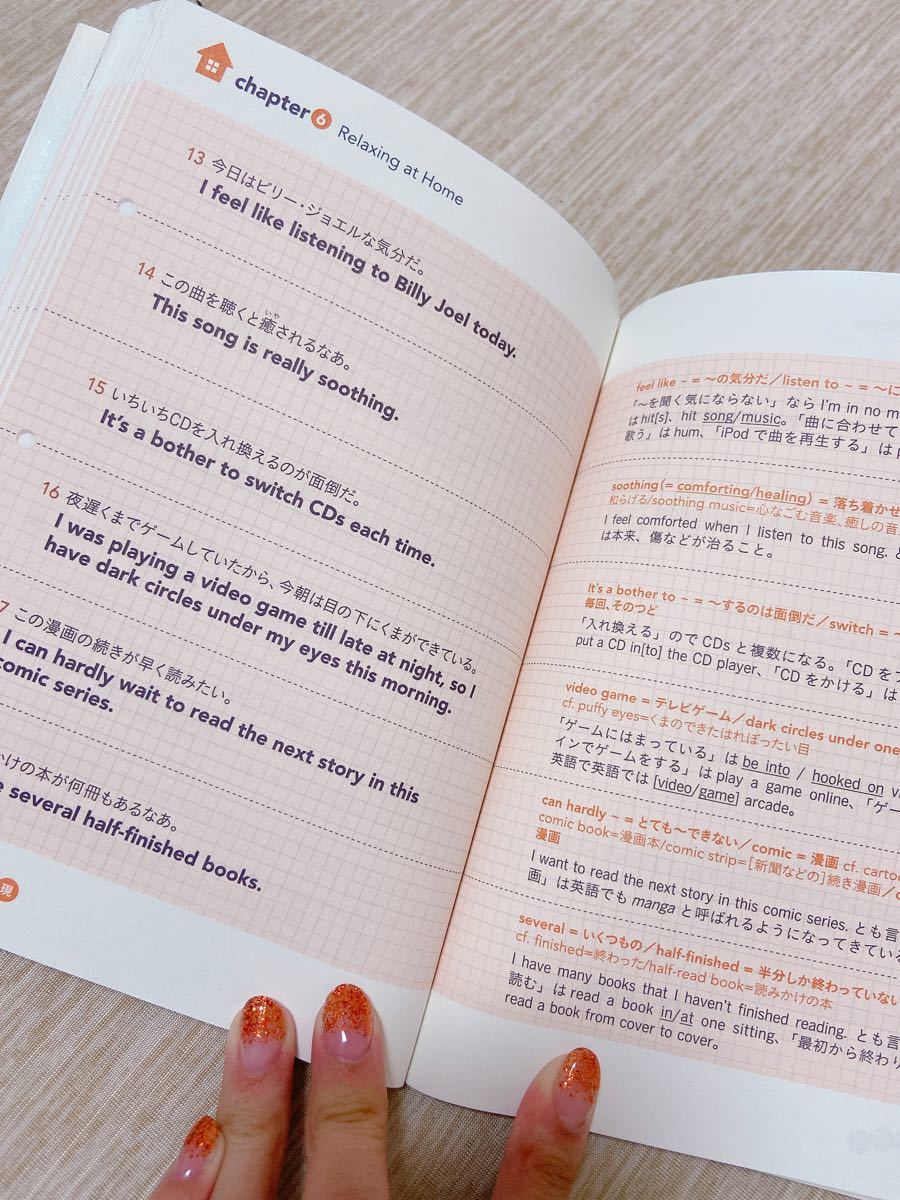 chapter 6 Relaxing at Home
13 今日はビリー・ジョエルな気分だ。
I feel like listening to Billy Joel today.
14 この曲を聴くと癒されるなあ。
いや
This song is really soothing.
15 いちいちCDを入れ換えるのが面倒だ。
It's a bother to switch CDs each time.
16 夜遅くまでゲームしていたから、今朝は目の下にくまができている。
I was playing a video game till late at night, so I
have dark circles under my eyes this morning.
7 この漫画の続きが早く読みたい。
I can hardly wait to read the next story in this
comic series.
かけの本が何冊もあるなあ。
several half-finished books.
現
feel like ~ = ~の気分だ/listen to ~ = ~に
「~を聞く気にならない」なら I'm in no m
は hit[s]、hit song/music。「曲に合わせて
歌う」は hum、「iPod で曲を再生する」は p
soothing (= comforting/healing) = 落ち着かせ
和らげる/soothing music=心なごむ音楽、癒しの音
I feel comforted when I listen to this song. と
は本来、傷などが治ること。
It's a bother to ~ = ~するのは面倒だ/switch = ~
毎回、そのつど
「入れ換える」ので CDs と複数になる。「CD をプ
put a CD in[to] the CD player、「CD をかける」は
video game = テレビゲーム/dark circles under one
cf. puffy eyes=くまのできたはれぼったい目
「ゲームにはまっている」は be into / hooked on v
インでゲームをする」は play a game online、「ゲー
英語で英語では [video/game] arcade。
can hardly ~ = とても~できない/comic = 漫画 cf. cartoo
comic book=漫画本/comic strip=[新聞などの]続き漫画/
漫画
I want to read the next story in this comic series. とも言
画」は英語でも manga と呼ばれるようになってきている
several = いくつもの/half-finished = 半分しか終わっていない
cf. finished=終わった/half-read book=読みかけの本
I have many books that I haven't finished reading. とも言
読む」は read a book in/at one sitting、「最初から終わり
read a book from cover to cover。